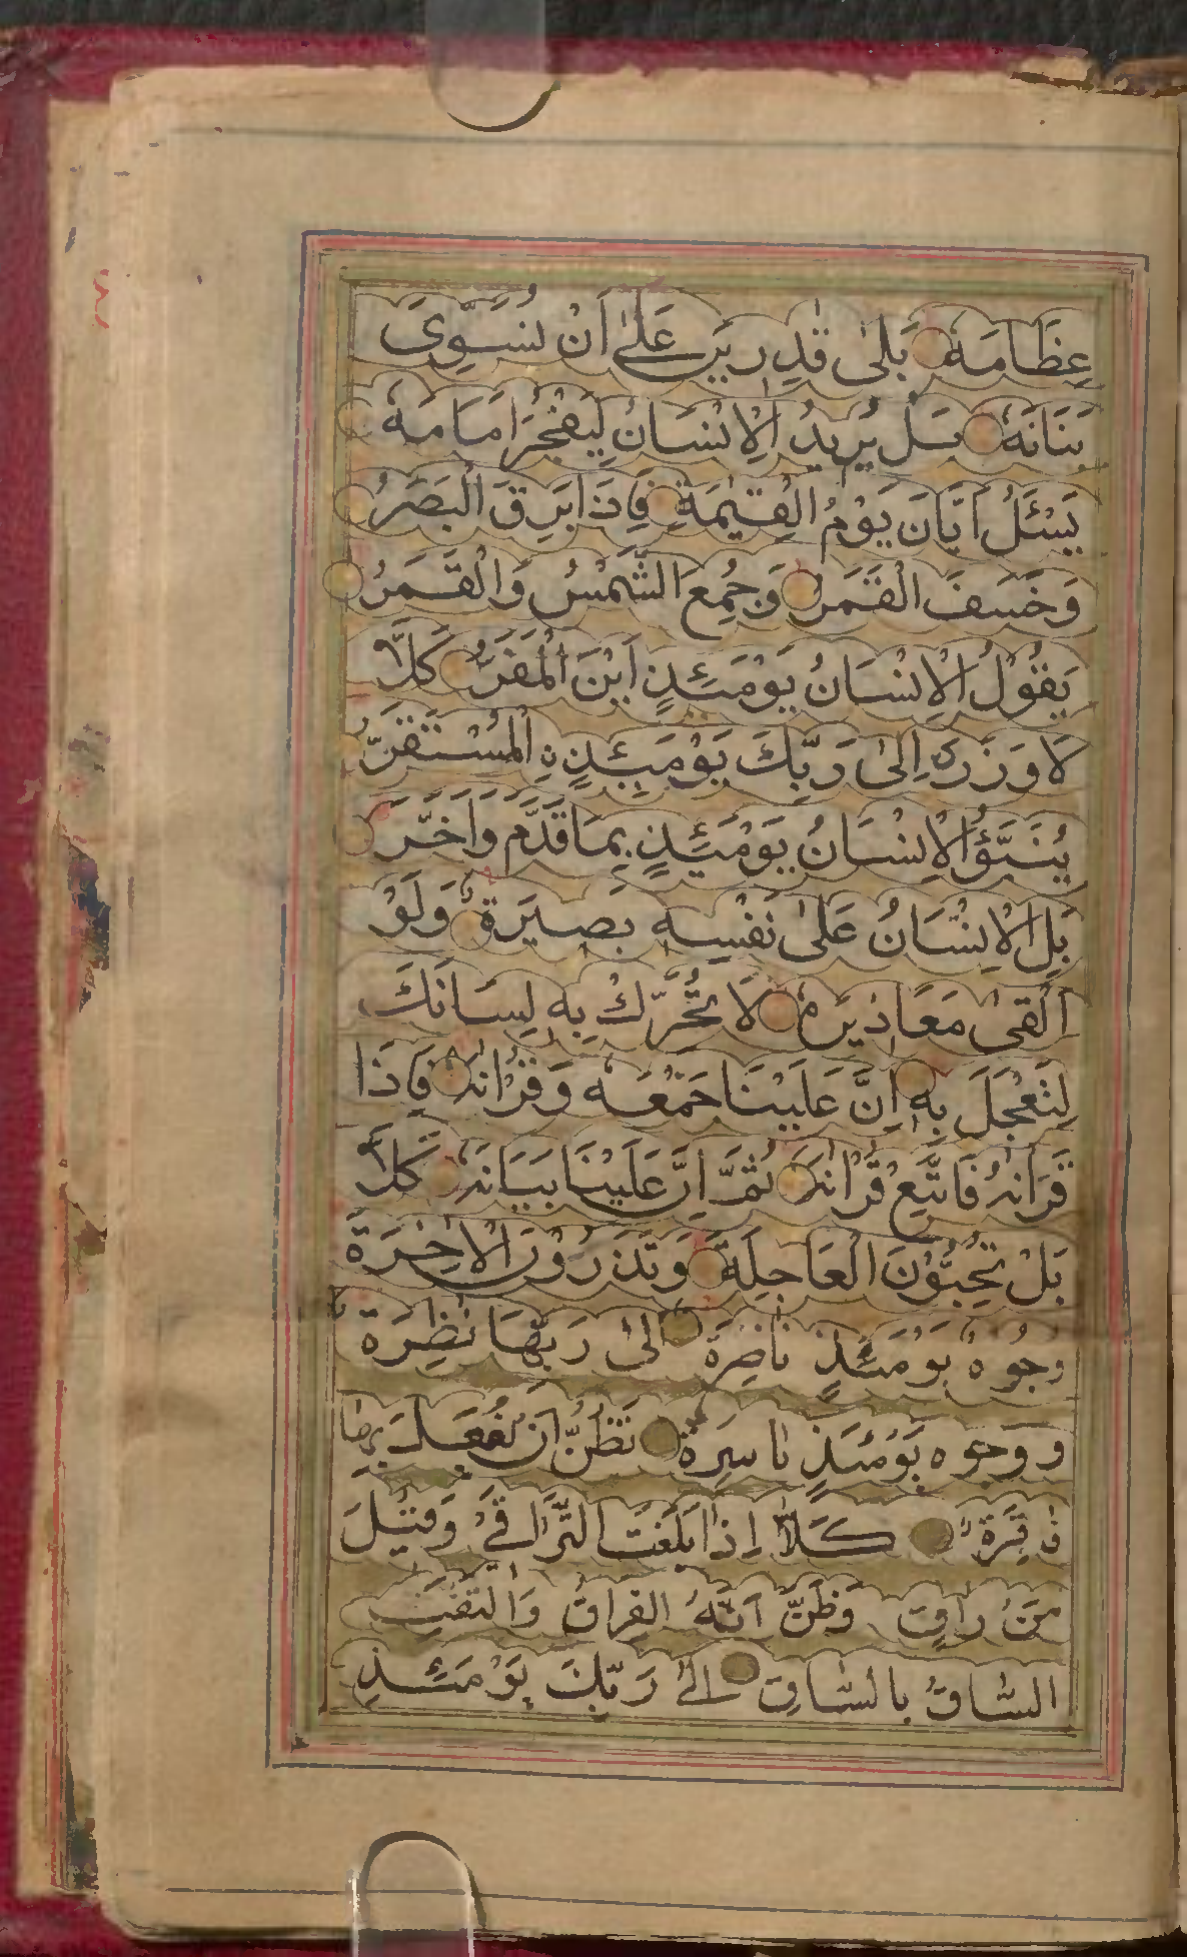 عِظَامَهٗ بَلٰى قٰدِرِيْنَ عَلٰى اَنْ نُسَوِّىَ
بَنَانَهٗ بَلْ يُرِيدُ الْاِنْسَانُ لِيَفْجُرَ اَمَامَهٗ
يَسْئَلُ اَيَّانَ يَوْمُ الْقِيٰمَةِ فَاِذَا بَرِقَ الْبَصَرُ
وَخَسَفَ الْقَمَرُ وَجُمِعَ الشَّمْسُ وَالْقَمَرُ
يَقُوْلُ الْاِنْسَانُ يَوْمَئِذٍ اَيْنَ الْمَفَرُّ كَلَّا
لَا وَزَرَ اِلٰى رَبِّكَ يَوْمَئِذٍ نِ الْمُسْتَقَرُّ
يُنَبَّؤُ الْاِنْسَانُ يَوْمَئِذٍ بِمَا قَدَّمَ وَاَخَّرَ
بَلِ الْاِنْسَانُ عَلٰى نَفْسِهٖ بَصِيْرَةٌ وَلَوْ
اَلْقٰى مَعَاذِيْرَهٗ لَا تُحَرِّكْ بِهٖ لِسَانَكَ
لِتَعْجَلَ بِهٖ اِنَّ عَلَيْنَا جَمْعَهٗ وَقُرْاٰنَهٗ فَاِذَا
قَرَاْنٰهُ فَاتَّبِعْ قُرْاٰنَهٗ ثُمَّ اِنَّ عَلَيْنَا بَيَانَهٗ كَلَّا
بَلْ تُحِبُّوْنَ الْعَاجِلَةَ وَتَذَرُوْنَ الْاٰخِرَةَ
وُجُوْهٌ يَوْمَئِذٍ نَاضِرَةٌ اِلٰى رَبِّهَا نَاظِرَةٌ
وَوُجُوْهٌ يَوْمَئِذٍ بَاسِرَةٌ تَظُنُّ اَنْ يُفْعَلَ بِهَا
فَاقِرَةٌ كَلَّا اِذَا بَلَغَتِ التَّرَاقِيَ وَقِيْلَ
مَنْ رَاقٍ وَظَنَّ اَنَّهُ الْفِرَاقُ وَالْتَفَّتِ
السَّاقُ بِالسَّاقِ اِلٰى رَبِّكَ يَوْمَئِذٍ